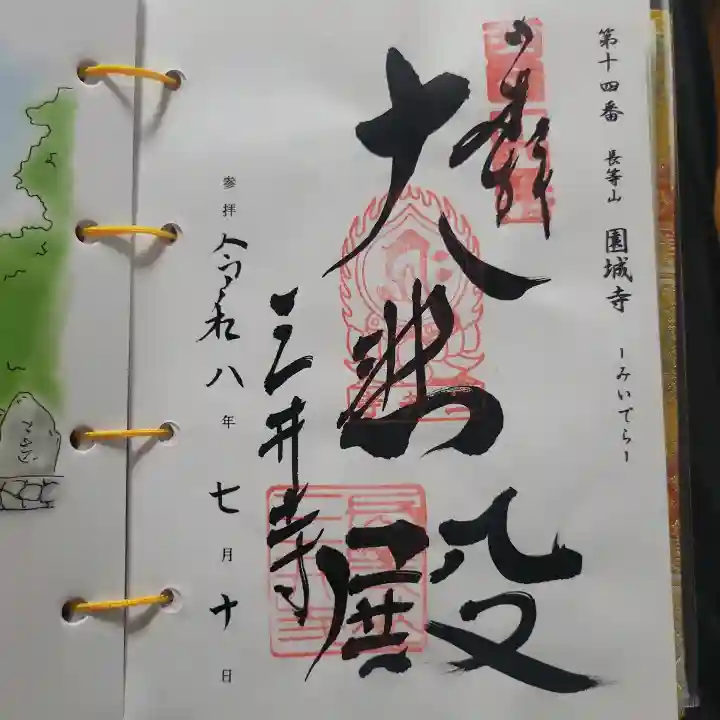 第十四番 長等山 園城寺 ーみいでらー
奉拝
大悲殿
三井寺
参拝 令和八年七月十日